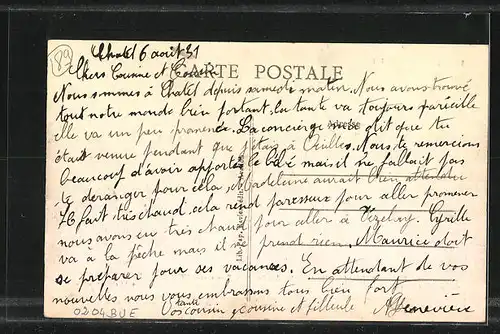 89
Chatel 6 août 31
Chers Cousine et Cousin
CARTE POSTALE
Nous sommes à Chatel depuis samedi matin. Nous avons trouvé
tout notre monde bien portant, la tante va toujours pareille
elle va un peu promener. La concierge m'as dit que tu
étais venue pendant que j'étais à Nous te remercions
beaucoup d'avoir apporter le bébé mais il ne fallait pas
te déranger pour cela, Madeleine aurait bien attendu
Il fait très chaud, cela rend paresseux pour aller promener
nous avons eu très chaud pour aller à Vézelay. Cyrille
va à la pêche mais il ne prend rien, Maurice doit
se préparer pour ses vacances. En attendant de vos
nouvelles nous vous embrassons tous bien fort
tante
Vos cousin, cousine et filleule Genevieve
0204.BUE